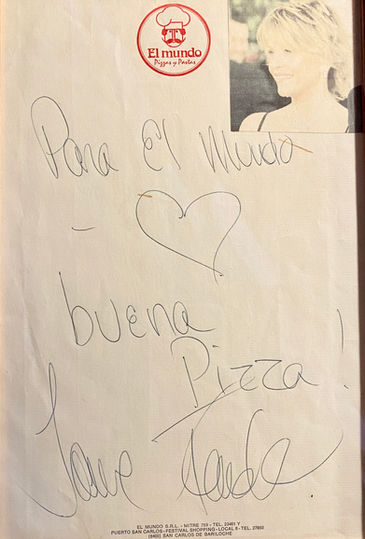 El mundo
Pizzas y Pastas
Para El Mundo
buena
Pizza!
Jane Fonda
EL MUNDO S.R.L. - MITRE 759 - TEL. 23461 Y
PUERTO SAN CARLOS - FESTIVAL SHOPPING - LOCAL 6 - TEL. 27802
(8400) SAN CARLOS DE BARILOCHE